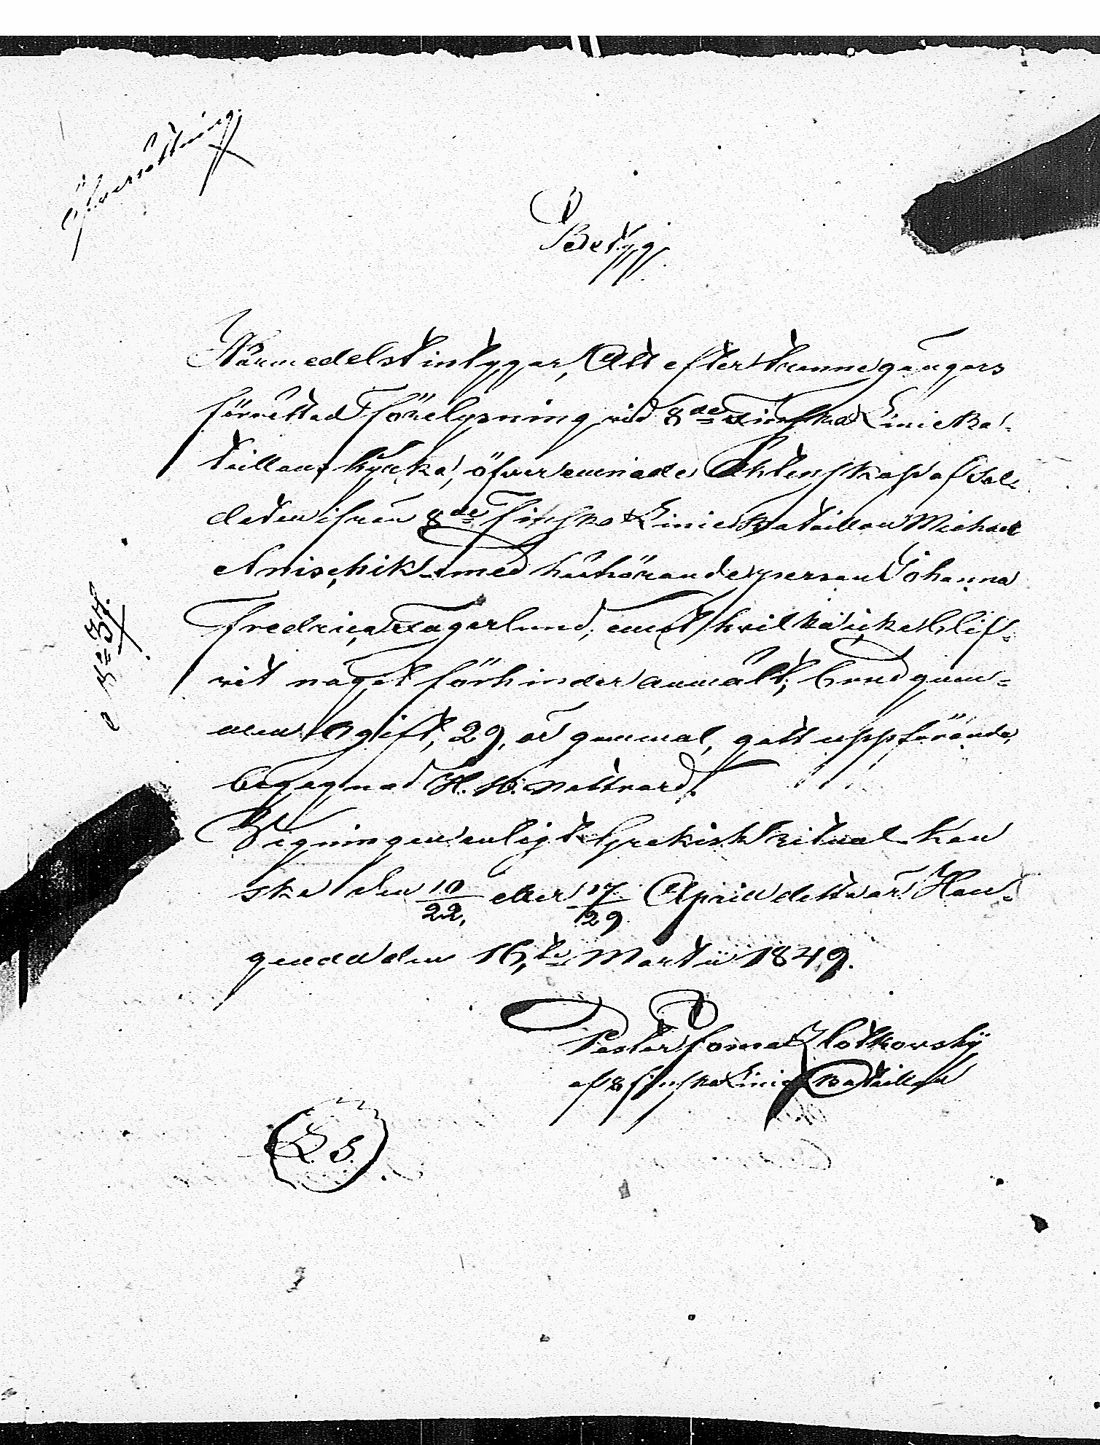 Öfversättning.
Betyg.
Härmedelst intygar, Att efter trenne gångers
förrättad Förelysning vid 8de Finska Linie Ba-
taillans kyrka, öfver ernade Äktenskap af Sol-
daten ifrån 8de Finska Linie Bataillon Michael
Anischik med härhörande person Johanna
Fredrica Fagerlund, emot hvilka icke blif-
vit något förhinder anmäldt, brudgum-
men ogift, 29, år gammal, godt uppförande,
begagnad H. H. Nattvard.
Vigningen enligt Grekisk ritual kan
ske den 10/22, eller 17/29 April detta år. Han-
geudd den 16,de Martii 1849.
Pastor Foma Zlotkovskÿ
af 8 Finska Linie Bataillon
L. S.
No 34.